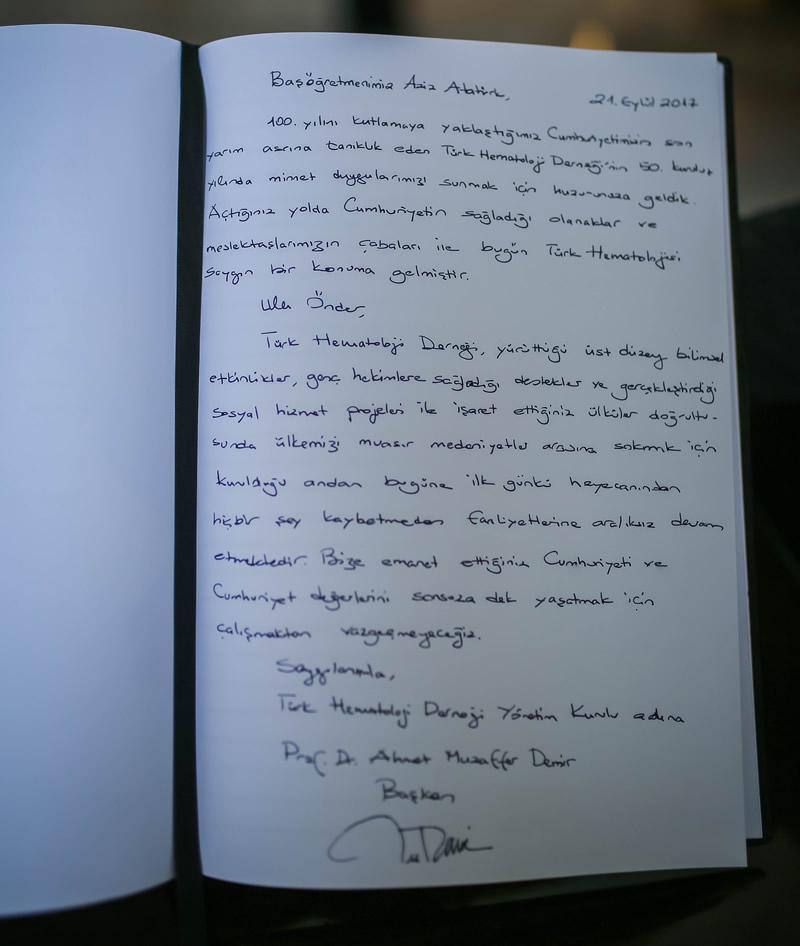 Başöğretmenimiz Aziz Atatürk,
21. Eylül 2017
100. yılını kutlamaya yaklaştığımız Cumhuriyetimizin son
yarım asrına tanıklık eden Türk Hematoloji Derneği'nin 50. kuruluş
yılında minnet duygularımızı sunmak için huzurunuza geldik.
Açtığınız yolda Cumhuriyetin sağladığı olanaklar ve
meslektaşlarımızın çabaları ile bugün Türk Hematolojisi
saygın bir konuma gelmiştir.
Ulu Önder,
Türk Hematoloji Derneği, yürüttüğü üst düzey bilimsel
etkinlikler, genç hekimlere sağladığı destekler ve gerçekleştirdiği
sosyal hizmet projeleri ile işaret ettiğiniz ülküler doğrultu-
sunda ülkemizi muasır medeniyetler arasına sokmak için
kurulduğu andan bugüne ilk günkü heyecanından
hiçbir şey kaybetmeden faaliyetlerine aralıksız devam
etmektedir. Bize emanet ettiğiniz Cumhuriyeti ve
Cumhuriyet değerlerini sonsuza dek yaşatmak için
çalışmaktan vazgeçmeyeceğiz.
Saygılarımla,
Türk Hematoloji Derneği Yönetim Kurulu adına
Prof. Dr. Ahmet Muzaffer Demir
Başkan